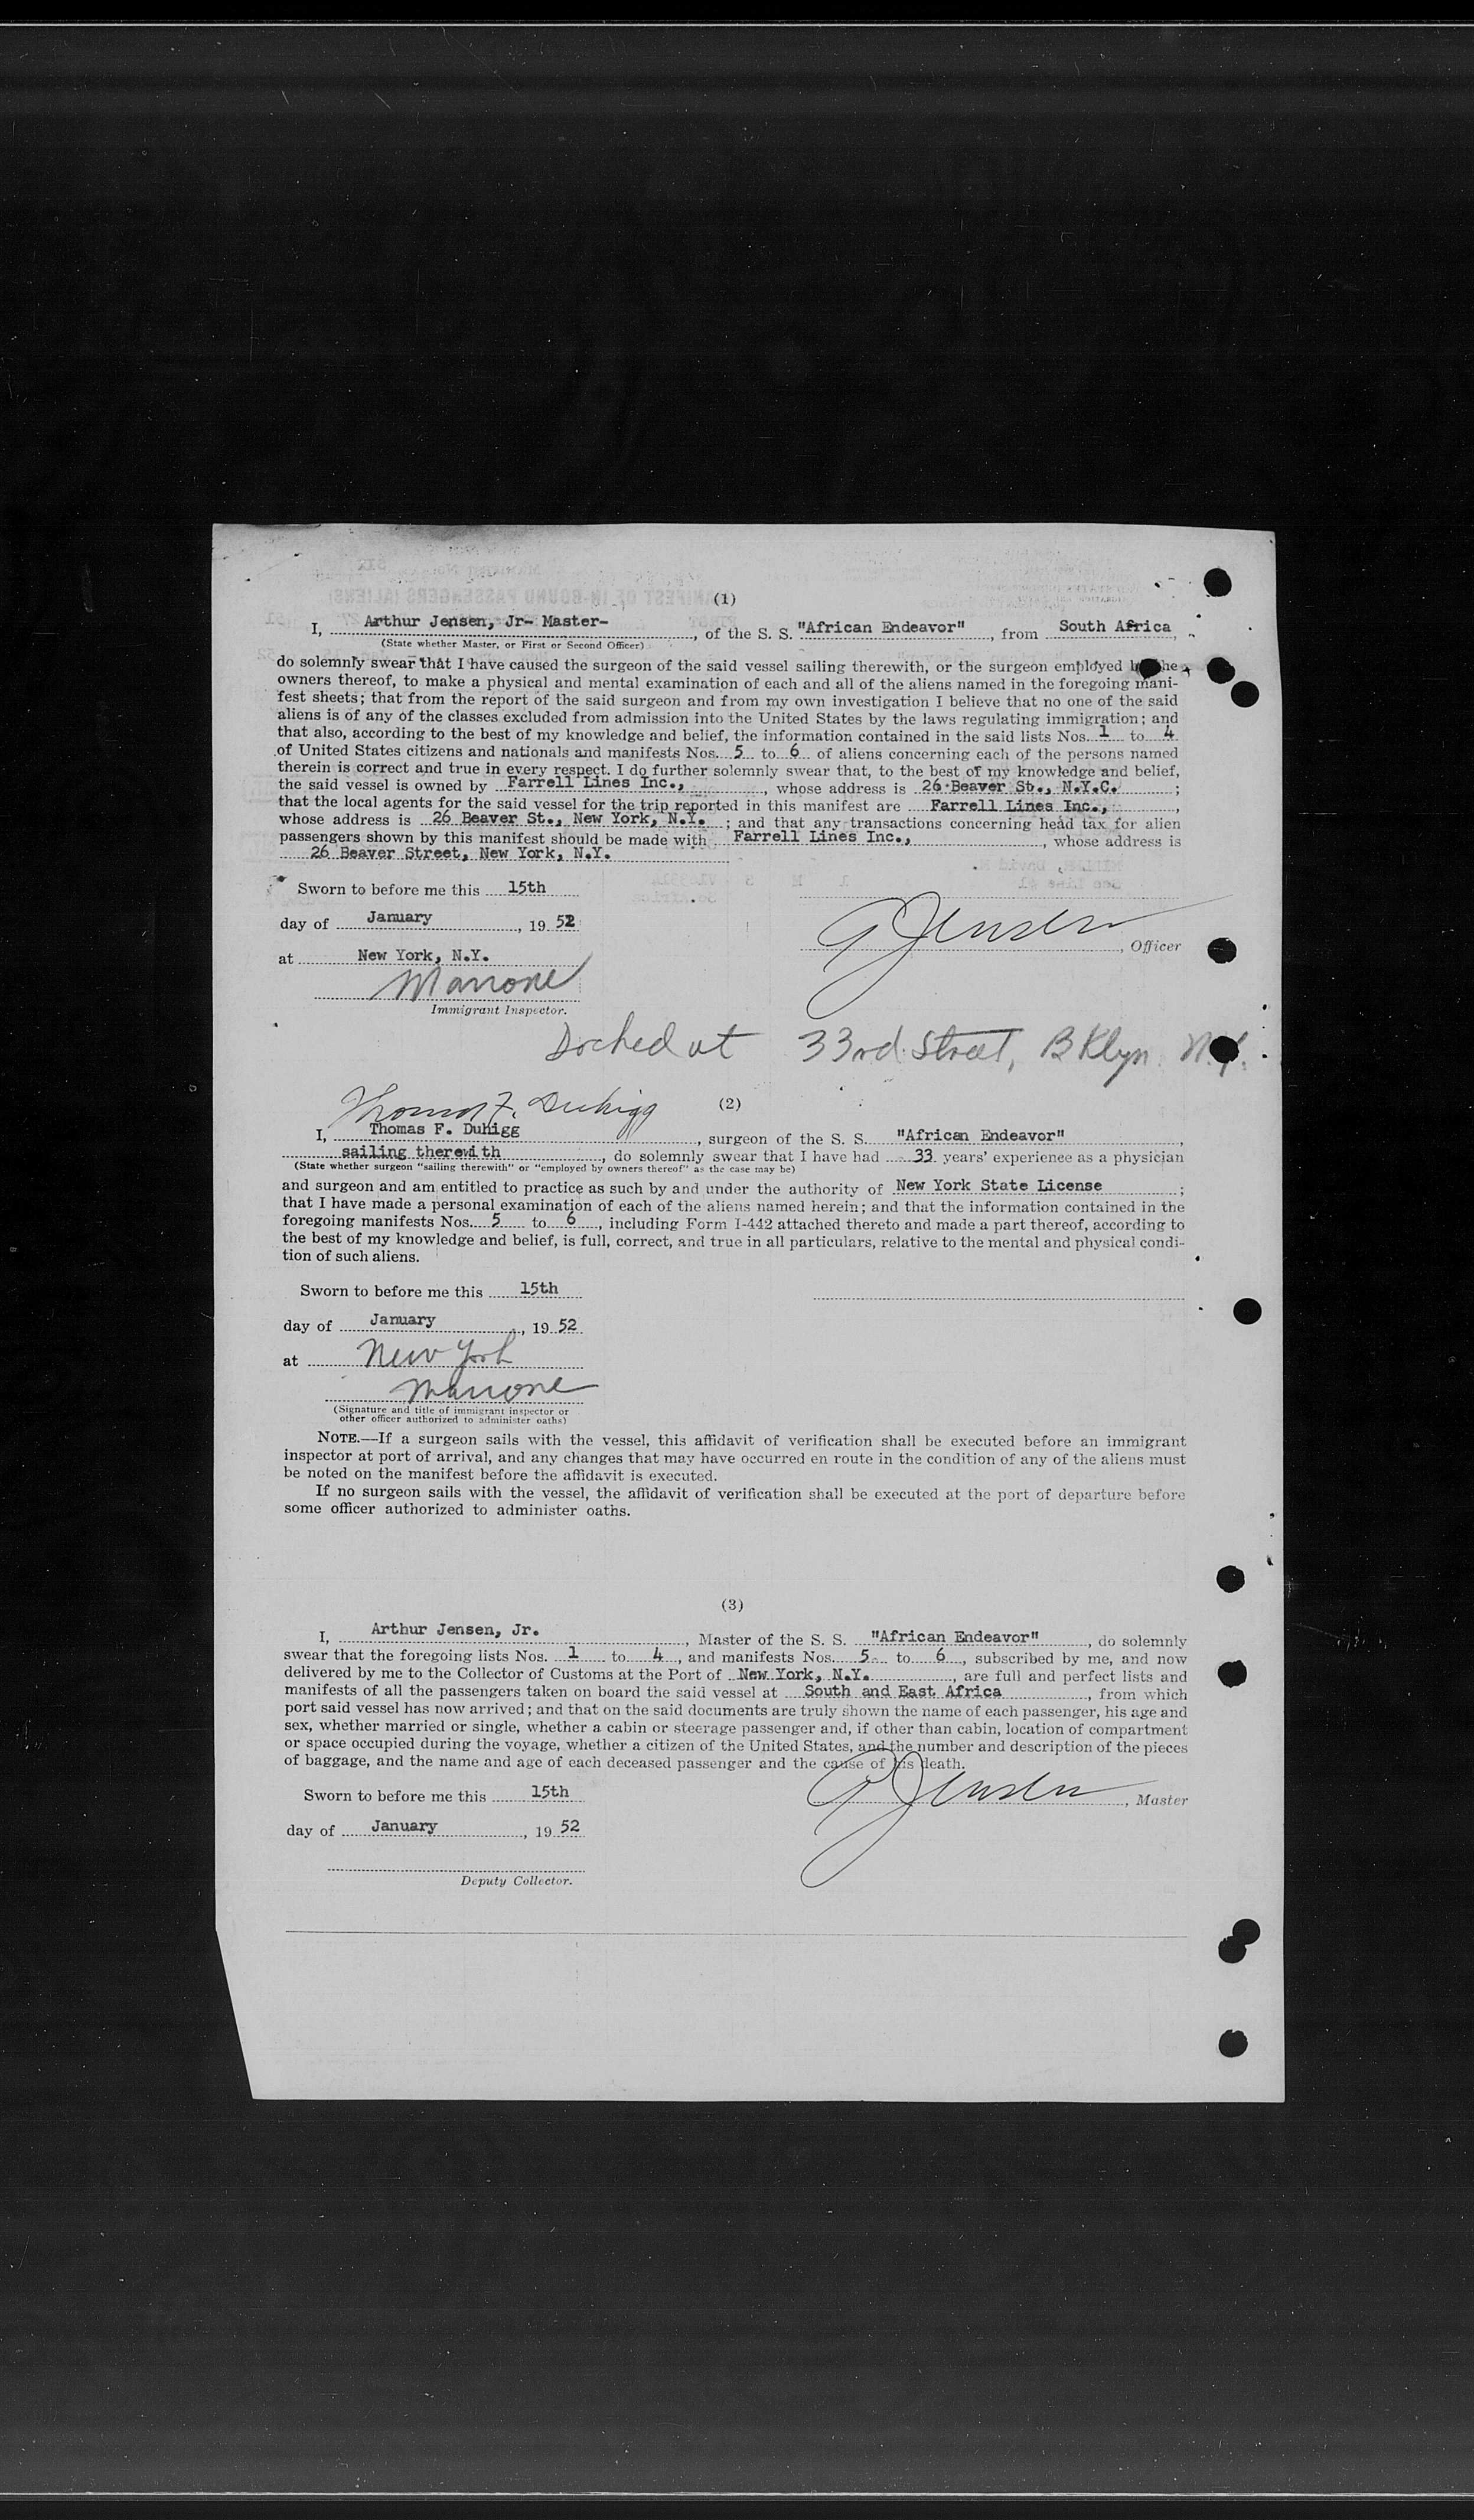 (1)
I, Arthur Jensen, Jr- Master-, of the S. S. "African Endeavor", from South Africa,
(State whether Master, or First or Second Officer)
do solemnly swear that I have caused the surgeon of the said vessel sailing therewith, or the surgeon employed by the
owners thereof, to make a physical and mental examination of each and all of the aliens named in the foregoing mani-
fest sheets; that from the report of the said surgeon and from my own investigation I believe that no one of the said
aliens is of any of the classes excluded from admission into the United States by the laws regulating immigration; and
that also, according to the best of my knowledge and belief, the information contained in the said lists Nos. 1 to 4
of United States citizens and nationals and manifests Nos. 5 to 6 of aliens concerning each of the persons named
therein is correct and true in every respect. I do further solemnly swear that, to the best of my knowledge and belief,
the said vessel is owned by Farrell Lines Inc., , whose address is 26 Beaver St., N.Y.C. ;
that the local agents for the said vessel for the trip reported in this manifest are Farrell Lines Inc., ,
whose address is 26 Beaver St., New York, N.Y. ; and that any transactions concerning head tax for alien
passengers shown by this manifest should be made with Farrell Lines Inc., , whose address is
26 Beaver Street, New York, N.Y.
Sworn to before me this 15th
day of January, 19 52
A Jensen, Officer
at New York, N.Y.
Marrone
Immigrant Inspector.
Docked at 33rd Street, BKlyn N.Y.
Thomas F. Duhigg
(2)
I, Thomas F. Duhigg, surgeon of the S. S. "African Endeavor",
sailing therewith, do solemnly swear that I have had 33 years' experience as a physician
(State whether surgeon "sailing therewith" or "employed by owners thereof" as the case may be)
and surgeon and am entitled to practice as such by and under the authority of New York State License ;
that I have made a personal examination of each of the aliens named herein; and that the information contained in the
foregoing manifests Nos. 5 to 6, including Form I-442 attached thereto and made a part thereof, according to
the best of my knowledge and belief, is full, correct, and true in all particulars, relative to the mental and physical condi-
tion of such aliens.
Sworn to before me this 15th
day of January, 19 52
at New York
Marrone
(Signature and title of immigrant inspector or
other officer authorized to administer oaths)
NOTE.—If a surgeon sails with the vessel, this affidavit of verification shall be executed before an immigrant
inspector at port of arrival, and any changes that may have occurred en route in the condition of any of the aliens must
be noted on the manifest before the affidavit is executed.
If no surgeon sails with the vessel, the affidavit of verification shall be executed at the port of departure before
some officer authorized to administer oaths.
(3)
I, Arthur Jensen, Jr., Master of the S. S. "African Endeavor", do solemnly
swear that the foregoing lists Nos. 1 to 4, and manifests Nos. 5 to 6, subscribed by me, and now
delivered by me to the Collector of Customs at the Port of New York, N.Y., are full and perfect lists and
manifests of all the passengers taken on board the said vessel at South and East Africa, from which
port said vessel has now arrived; and that on the said documents are truly shown the name of each passenger, his age and
sex, whether married or single, whether a cabin or steerage passenger and, if other than cabin, location of compartment
or space occupied during the voyage, whether a citizen of the United States, and the number and description of the pieces
of baggage, and the name and age of each deceased passenger and the cause of his death.
Sworn to before me this 15th
A Jensen, Master
day of January, 19 52
Deputy Collector.